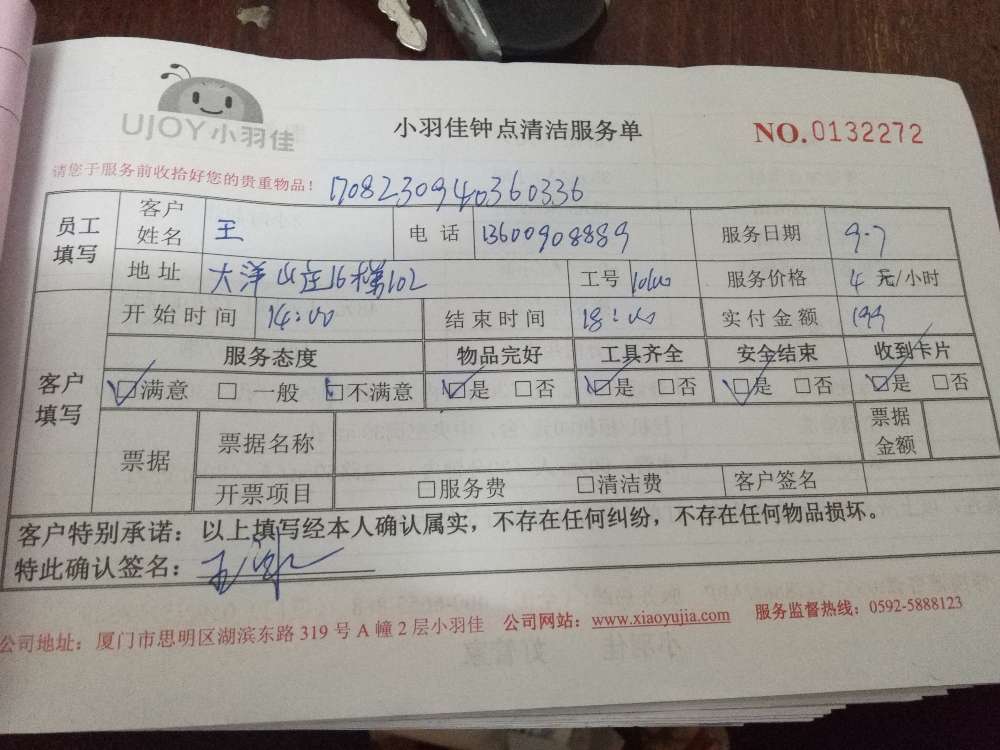 UJOY小羽佳
小羽佳钟点清洁服务单
NO.0132272
请您于服务前收拾好您的贵重物品！
170823094036036
员工填写 客户姓名 王 电话 13600908889 服务日期 9.7
地址 大洋山庄16梯102 工号 服务价格 4 元/小时
客户填写 开始时间 14:00 结束时间 18:00 实付金额 199
服务态度 物品完好 工具齐全 安全结束 收到卡片
☑满意 □一般 □不满意 ☑是 □否 ☑是 □否 ☑是 □否 ☑是 □否
票据 票据名称 票据金额
开票项目 □服务费 □清洁费 客户签名
客户特别承诺：以上填写经本人确认属实，不存在任何纠纷，不存在任何物品损坏。
特此确认签名：
公司地址：厦门市思明区湖滨东路319号A幢2层小羽佳 公司网站：www.xiaoyujia.com 服务监督热线：0592-5888123